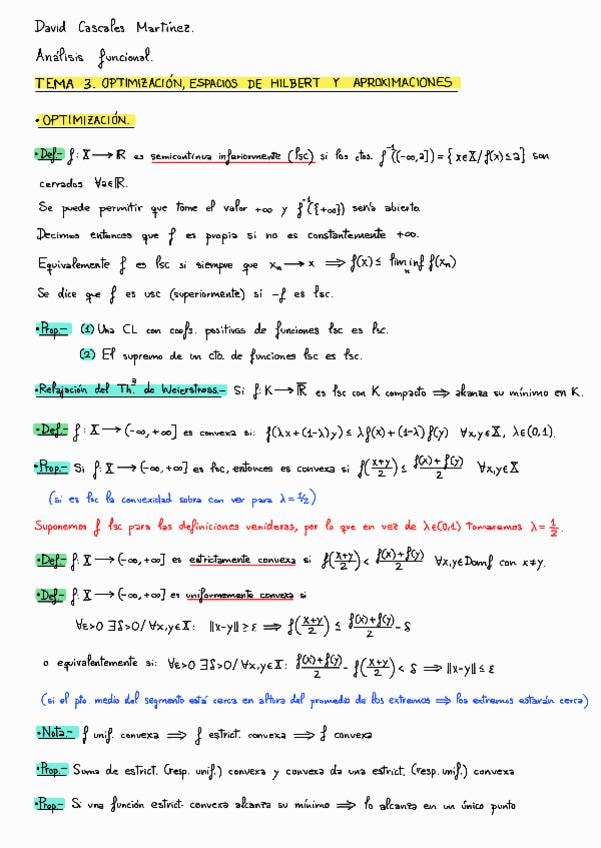 David Cascales Martínez.
Análisis funcional.
TEMA 3. OPTIMIZACIÓN, ESPACIOS DE HILBERT Y APROXIMACIONES
• OPTIMIZACIÓN.
•Def.- f: X ⟶ ℝ es semicontinua inferiormente (lsc) si los ctos. f⁻¹((-∞,a]) = {x∈X / f(x) ≤ a} son
cerrados ∀a∈ℝ.
Se puede permitir que tome el valor +∞ y f⁻¹({+∞}) sería abierto.
Decimos entonces que f es propia si no es constantemente +∞.
Equivalemente f es lsc si siempre que xₙ ⟶ x ⟹ f(x) ≤ lim inf f(xₙ)
n
Se dice que f es usc (superiormente) si -f es lsc.
•Prop.- (1) Una CL con coefs. positivos de funciones lsc es lsc.
(2) El supremo de un cto. de funciones lsc es lsc.
•Relajación del Th.ª de Weierstrass.- Si f: K ⟶ ℝ̅ es lsc con K compacto ⟹ alcanza su mínimo en K.
•Def.- f: X ⟶ (-∞, +∞] es convexa si: f(λx + (1-λ)y) ≤ λf(x) + (1-λ)f(y) ∀x,y∈X, λ∈(0,1).
•Prop.- Si f: X ⟶ (-∞, +∞] es lsc, entonces es convexa si f((x+y)/2) ≤ (f(x)+f(y))/2 ∀x,y∈X
(si es lsc la convexidad sobra con ver para λ = 1/2)
Suponemos f lsc para las definiciones venideras, por lo que en vez de λ∈(0,1) tomaremos λ = 1/2.
•Def.- f: X ⟶ (-∞, +∞] es estrictamente convexa si f((x+y)/2) < (f(x)+f(y))/2 ∀x,y∈Domf con x≠y.
•Def.- f: X ⟶ (-∞, +∞] es uniformemente convexa si
∀ε>0 ∃δ>0 / ∀x,y∈X: ||x-y|| ≥ ε ⟹ f((x+y)/2) ≤ (f(x)+f(y))/2 - δ
o equivalentemente si: ∀ε>0 ∃δ>0 / ∀x,y∈X: (f(x)+f(y))/2 - f((x+y)/2) < δ ⟹ ||x-y|| ≤ ε
(si el pto. medio del segmento está cerca en altura del promedio de los extremos ⟹ los extremos estarán cerca)
•Nota.- f unif. convexa ⟹ f estrict. convexa ⟹ f convexa
•Prop.- Suma de estrict. (resp. unif.) convexa y convexa da una estrict. (resp. unif.) convexa
•Prop.- Si una función estrict. convexa alcanza su mínimo ⟹ lo alcanza en un único punto